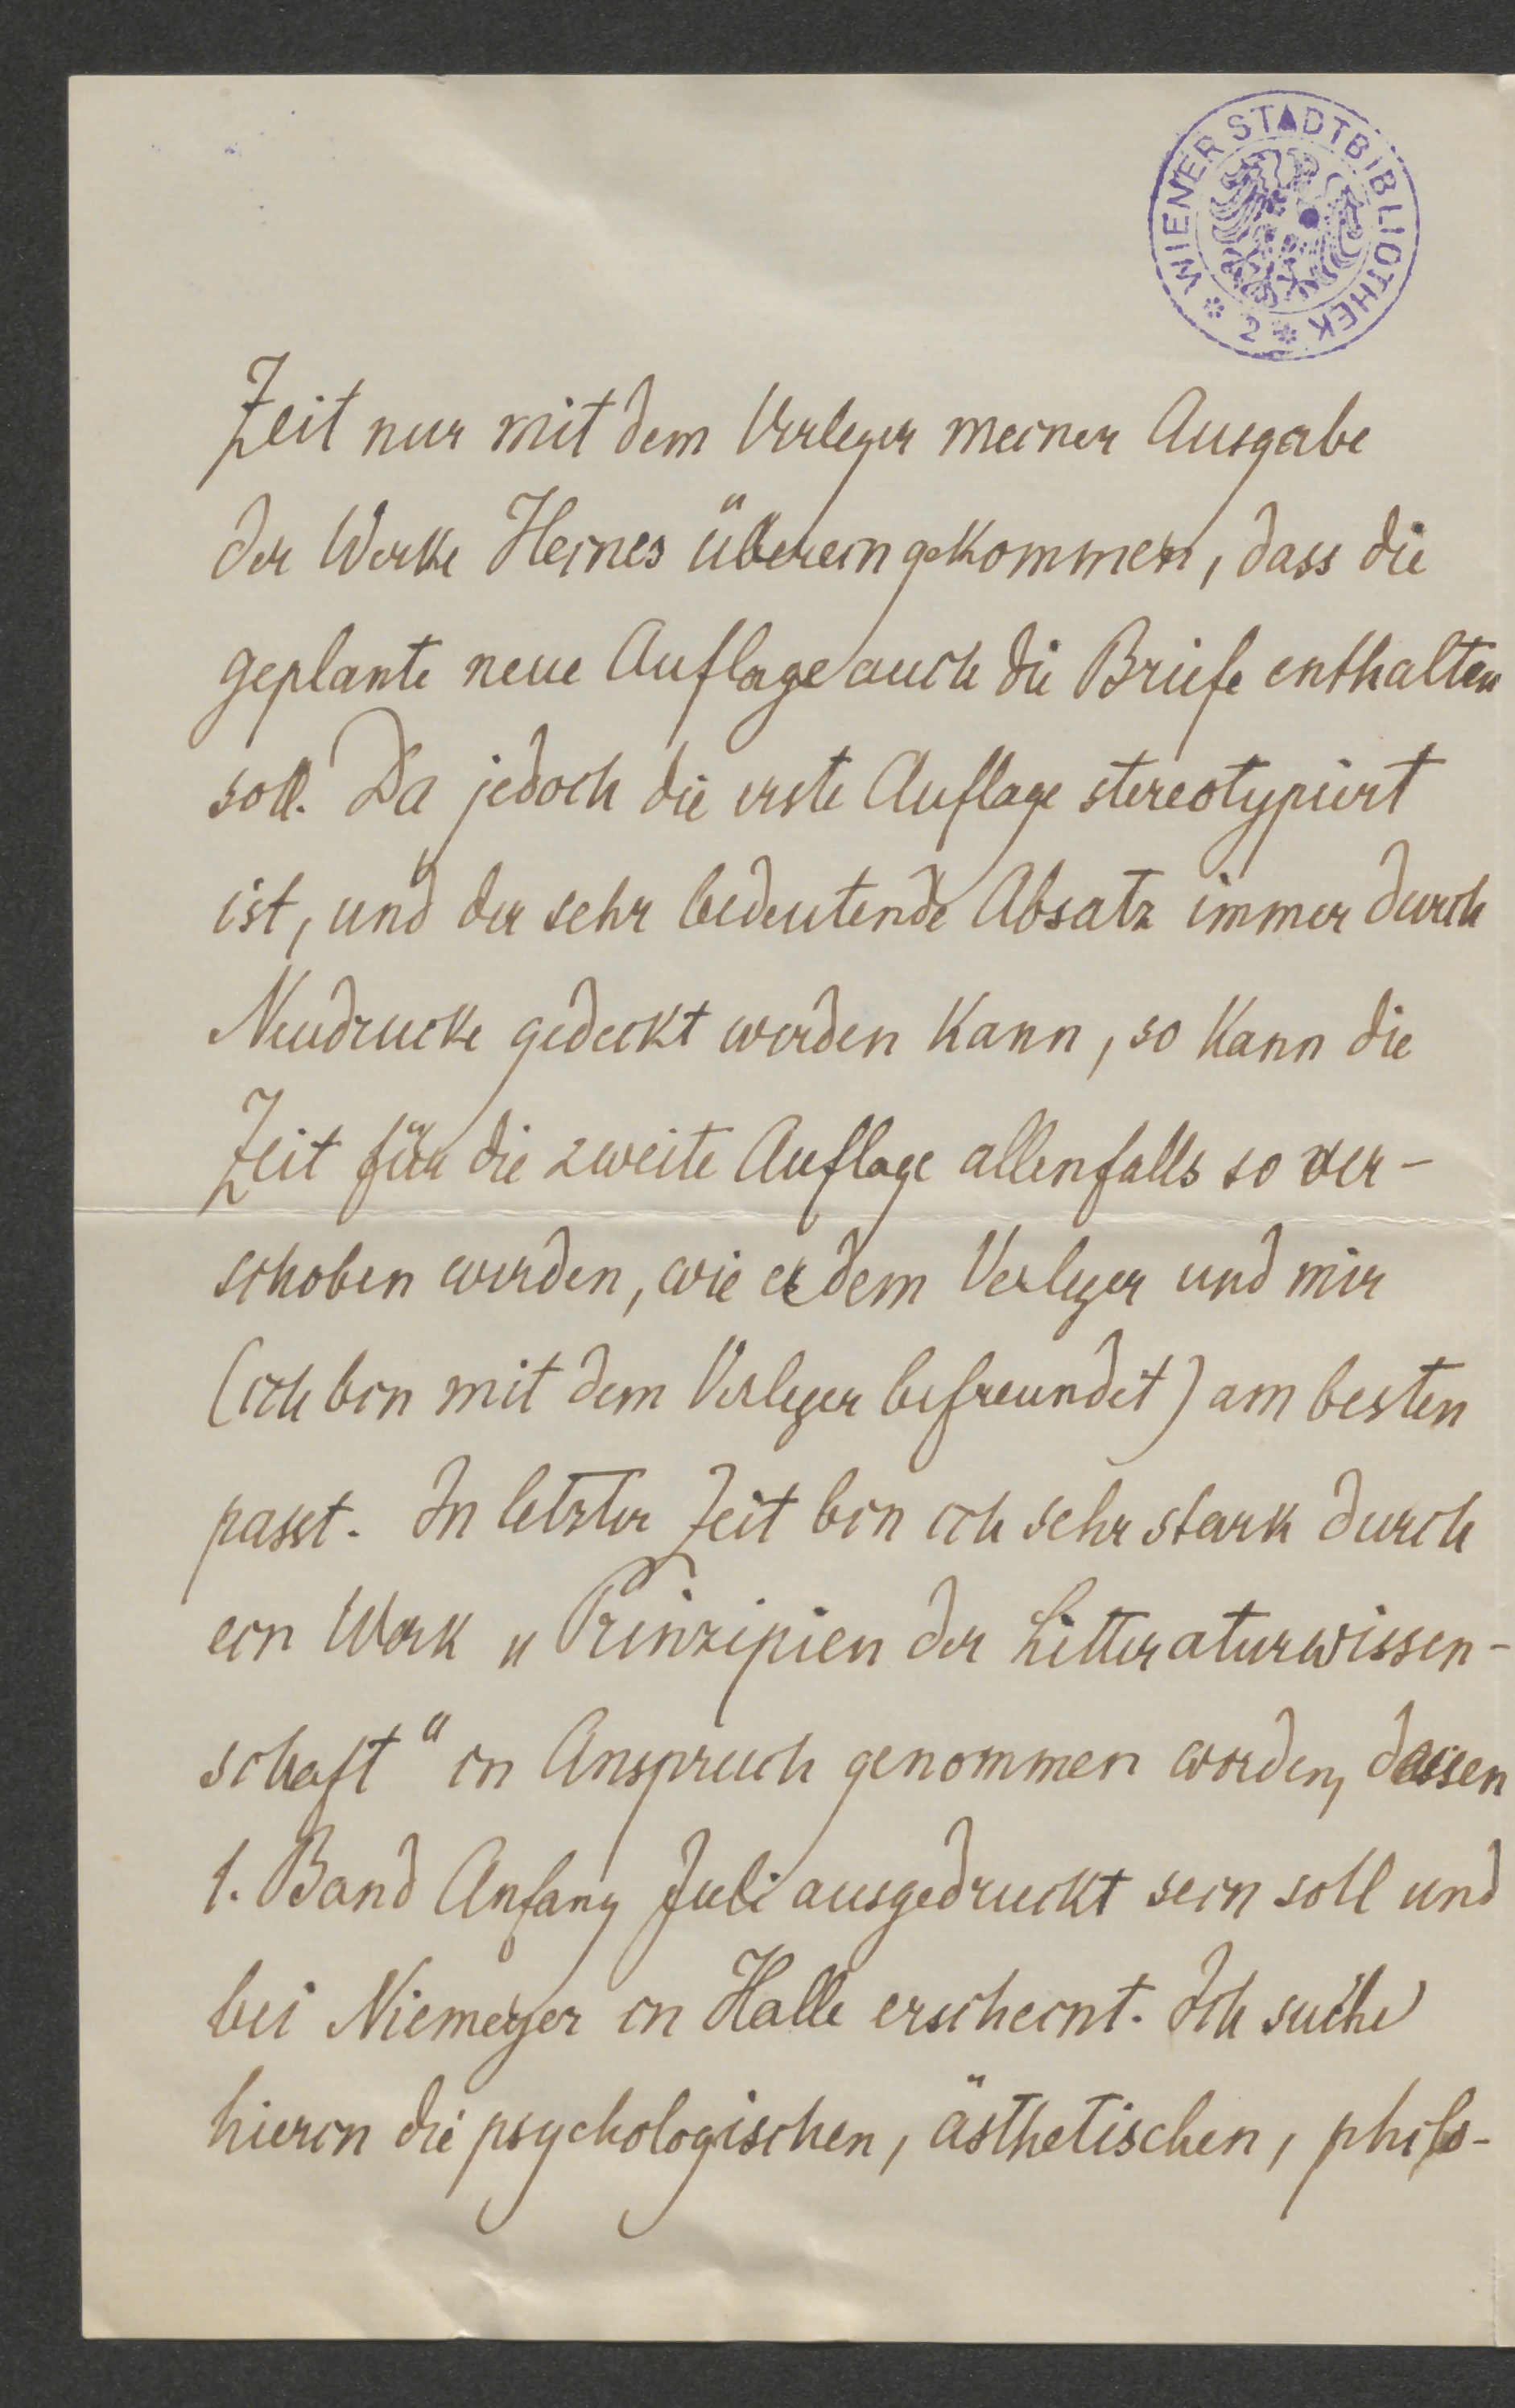 WIENER STADTBIBLIOTHEK * 2 *
Zeit nur mit dem Verleger meiner Ausgabe
der Werke Heines übereingekommen, dass die
geplante neue Auflage auch die Briefe enthalten
soll. Da jedoch die erste Auflage stereotypiert
ist, und der sehr bedeutende Absatz immer durch
Neudrucke gedeckt werden kann, so kann die
Zeit für die zweite Auflage allenfalls so ver-
schoben werden, wie es dem Verleger und mir
(ich bin mit dem Verleger befreundet) am besten
passt. In letzter Zeit bin ich sehr stark durch
ein Werk „Prinzipien der Litteraturwissen-
schaft“ in Anspruch genommen worden, dessen
1. Band Anfang Juli ausgedruckt sein soll und
bei Niemeyer in Halle erscheint. Ich suche
hierin die psychologischen, ästhetischen, philo-